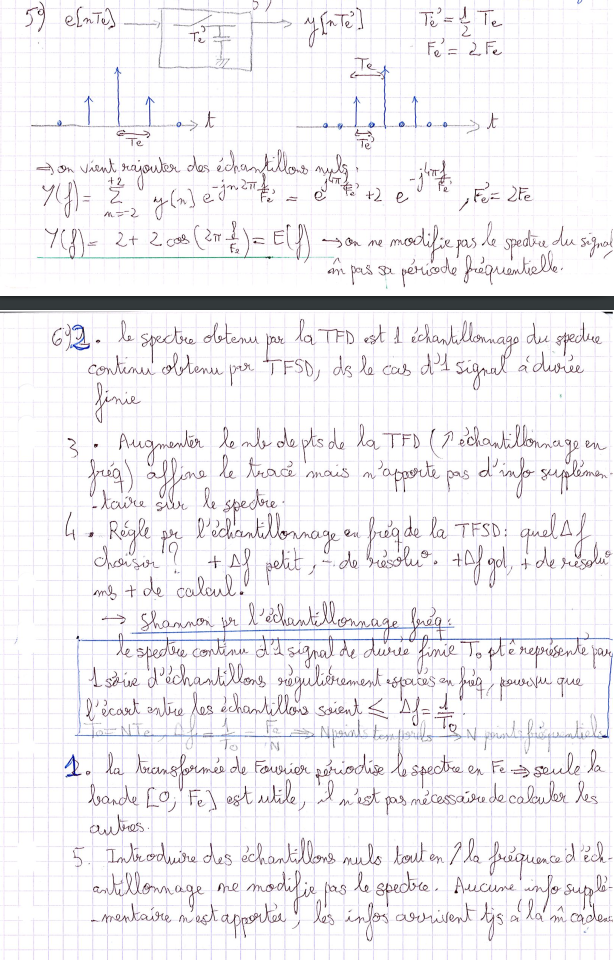 5°) e[nTe] → Te' → y[nTe'] Te' = 1/2 Te
Fe' = 2Fe
Te
t t
Te Te'
⇒ on vient rajouter des échantillons nuls.
Y(f) = +2 Σ n=-2 y[n] e^{-jn2π f/Fe'} = e^{j4π f/Fe'} + 2 e^{-j4π f/Fe'}, Fe' = 2Fe
Y(f) = 2 + 2 cos(2π f/Fe) = E(f) → on ne modifie pas le spectre du signal
m̂ pas sa période fréquentielle.
6°) 2. le spectre obtenu par la TFD est 1 échantillonnage du spectre
continu obtenu par TFSD, ds le cas d'1 signal à durée
finie
3 . Augmenter le nb de pts de la TFD (↗ échantillonnage en
fréq) affine le tracé mais n'apporte pas d'info supplémen-
-taire sur le spectre.
4 . Règle pr l'échantillonnage en fréq de la TFSD: quel Δf
choisir ? + Δf petit, - de résoluº. + Δf gd, + de résoluº
ms + de calcul.
→ Shannon pr l'échantillonnage fréq:
le spectre continu d'1 signal de durée finie T₀ pt ê représenté par
1 série d'échantillons régulièrement espacés en fréq, pourvu que
l'écart entre les échantillons soient ≤ Δf = 1/T₀.
T₀ = NTe, Δf = 1/T₀ = Fe/N ⇒ N points temporels → N points fréquentiels
1. la transformée de Fourier périodise le spectre en Fe ⇒ seule la
bande [0, Fe] est utile, il n'est pas nécessaire de calculer les
autres.
5. Introduire des échantillons nuls tout en ↗ la fréquence d'éch-
antillonnage ne modifie pas le spectre. Aucune info supplé-
-mentaire n'est apportée, les infos arrivent tjs à la m̂ cadence